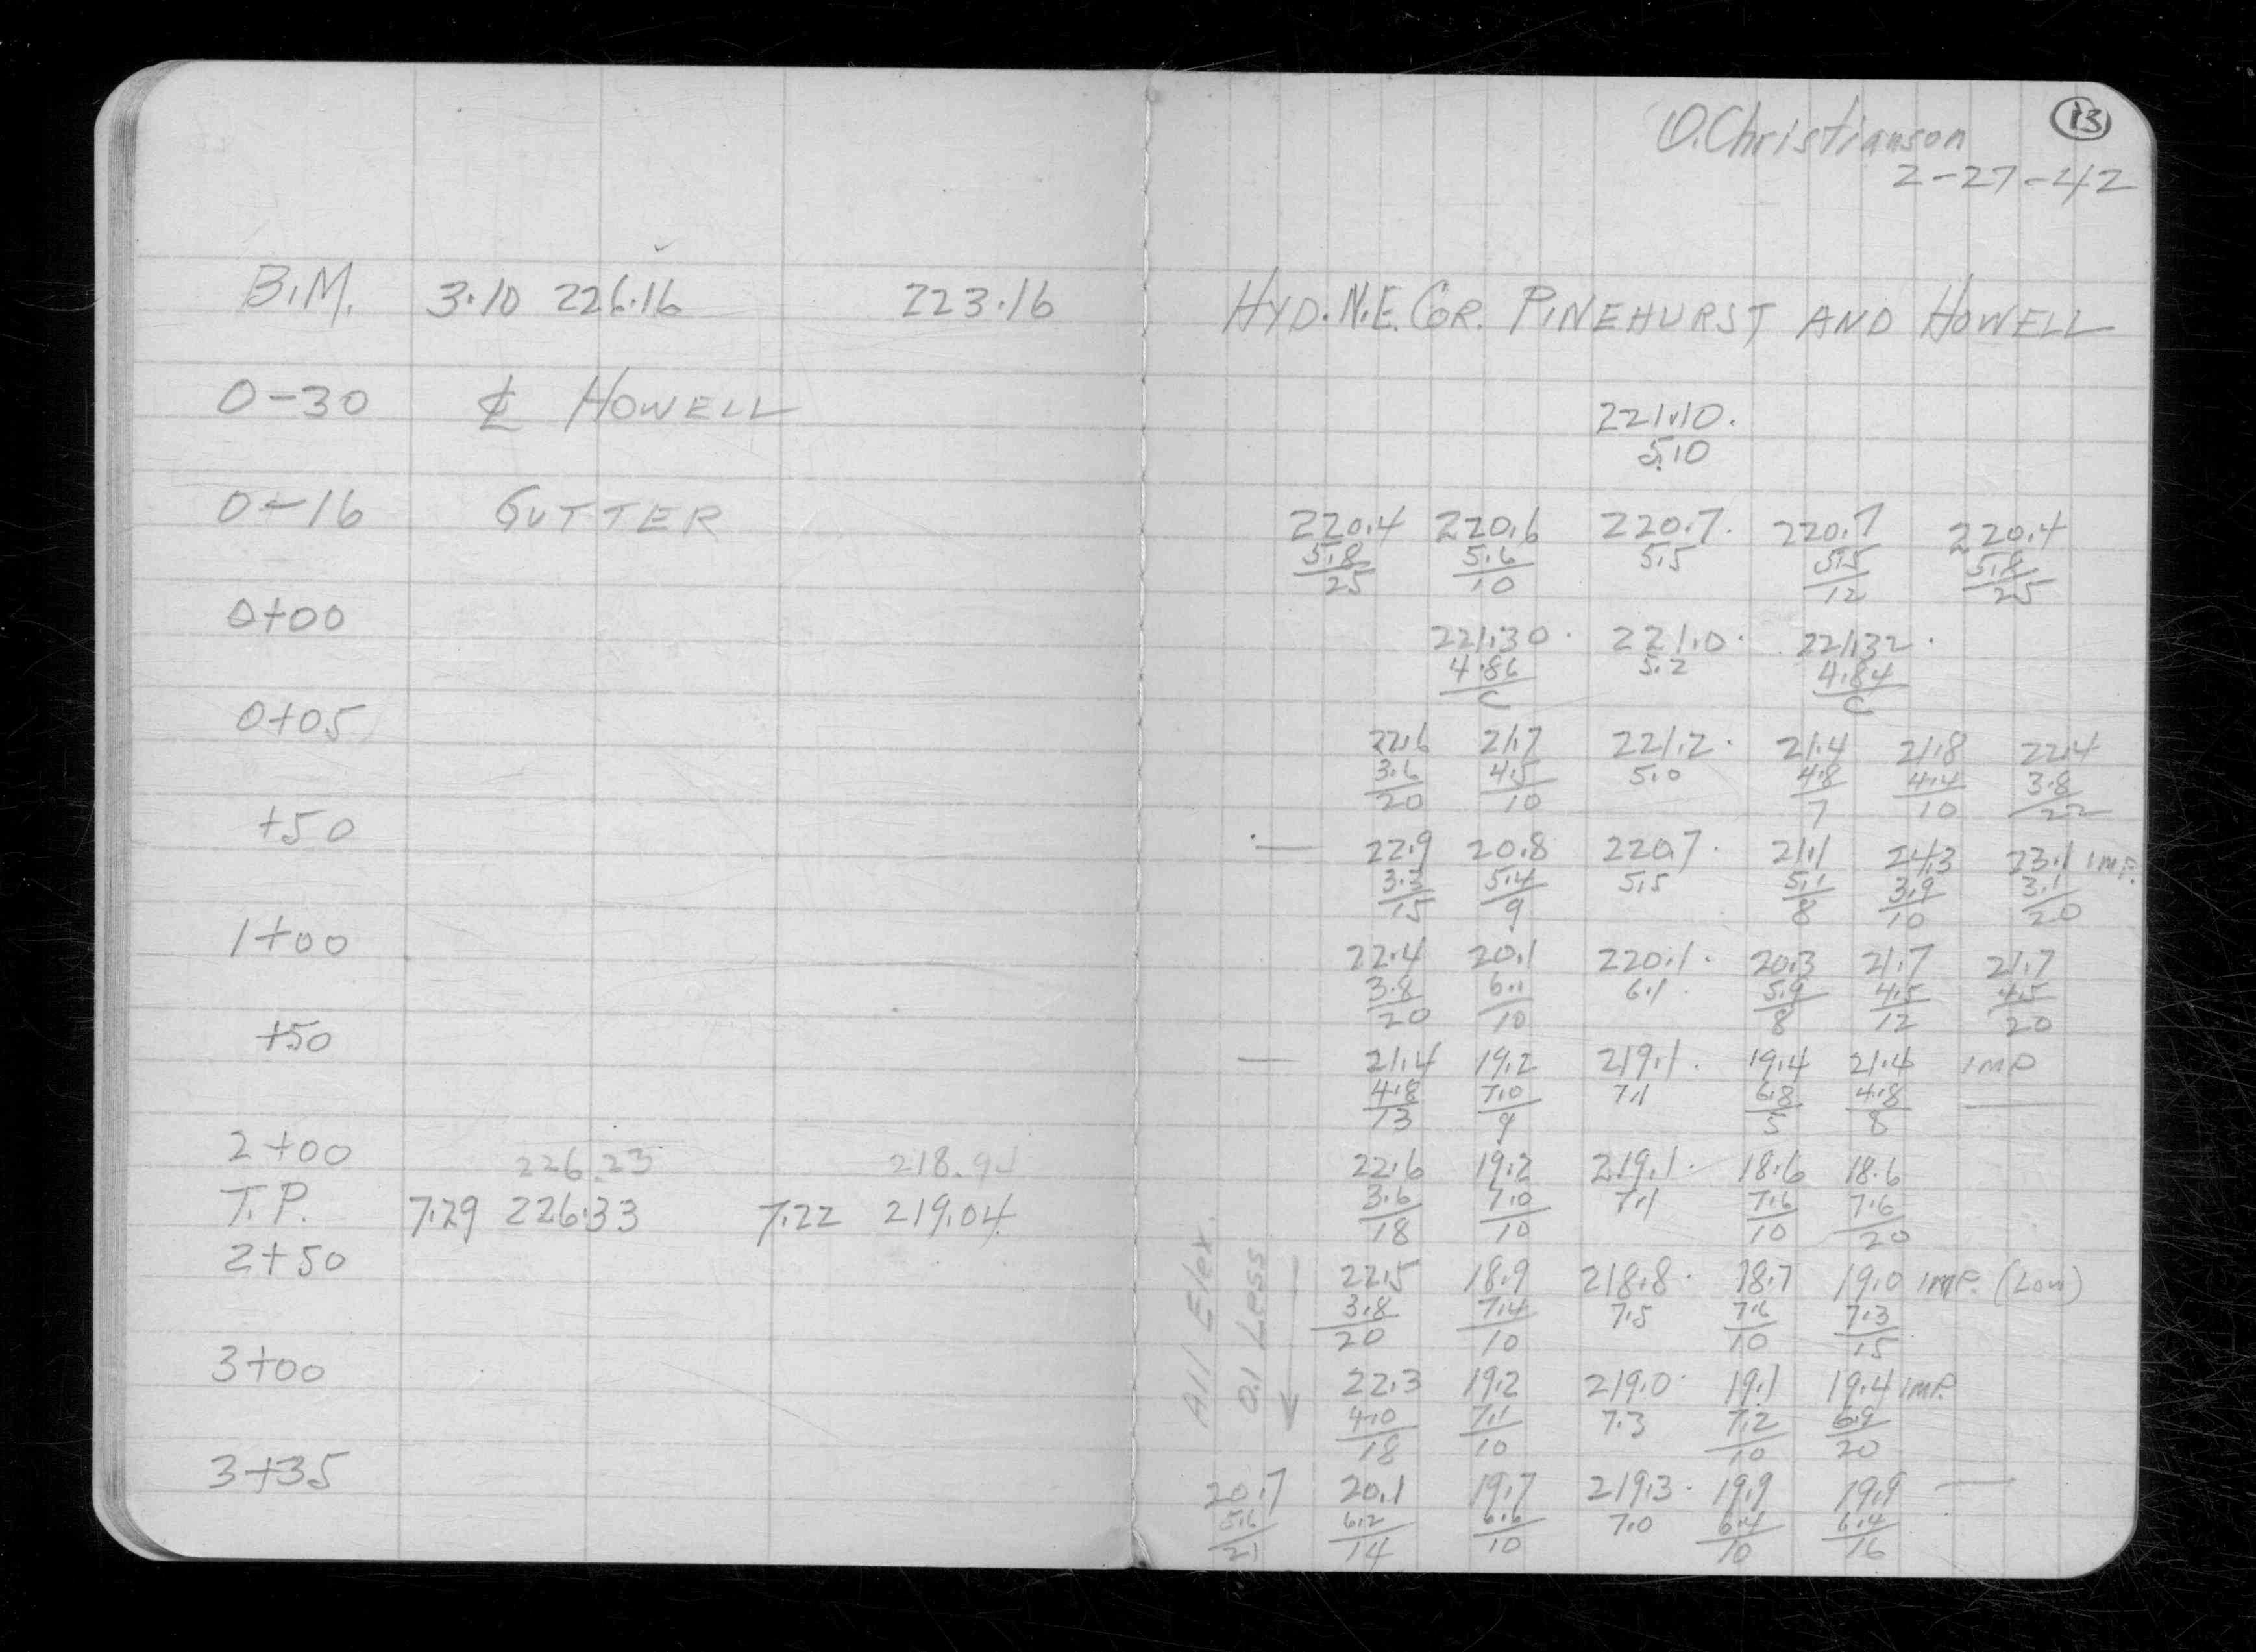 O.Christianson
13
2-27-42
B.M. 3.10 226.16 223.16 HYD. N.E. COR. PINEHURST AND HOWELL
0-30 ℄ HOWELL 221.10
5.10
0-16 GUTTER 220.4 220.6 220.7 220.7 220.4
5.8 5.6 5.5 5.5 5.8
25 10 12 25
0+00 221.30 221.0 221.32
4.86 5.2 4.84
C C
0+05 22.6 21.7 221.2 21.4 21.8 22.4
3.6 4.5 5.0 4.8 4.4 3.8
20 10 7 10 22
+50 — 22.9 20.8 220.7 21.1 23.1 IMP.
5.4 5.5 5.1 3.9 3.1
15 9 8 10 20
1+00 22.4 20.1 220.1 20.3 21.7 21.7
3.8 6.1 6.1 5.9 4.5 4.5
20 10 8 12 20
+50 — 21.4 19.2 219.1 19.4 21.4 IMP
4.8 7.0 7.1 6.8 4.8 —
13 9 5 8
2+00 226.23 218.94 22.6 19.2 219.1 18.6 18.6
T.P. 7.29 226.33 7.22 219.04 3.6 7.0 7.1 7.6 7.6
18 10 10 20
All Elev.
0.1 Less
2+50 22.5 18.9 218.8 18.7 19.0 IMP. (Low)
3.8 7.4 7.5 7.6 7.3
20 10 10 15
3+00 22.3 19.2 219.0 19.1 19.4 IMP.
4.0 7.1 7.3 7.2 6.9
18 10 10 20
3+35 20.7 20.1 19.7 219.3 19.9 19.9 —
5.6 6.2 6.6 7.0 6.4 6.4
21 14 10 10 16